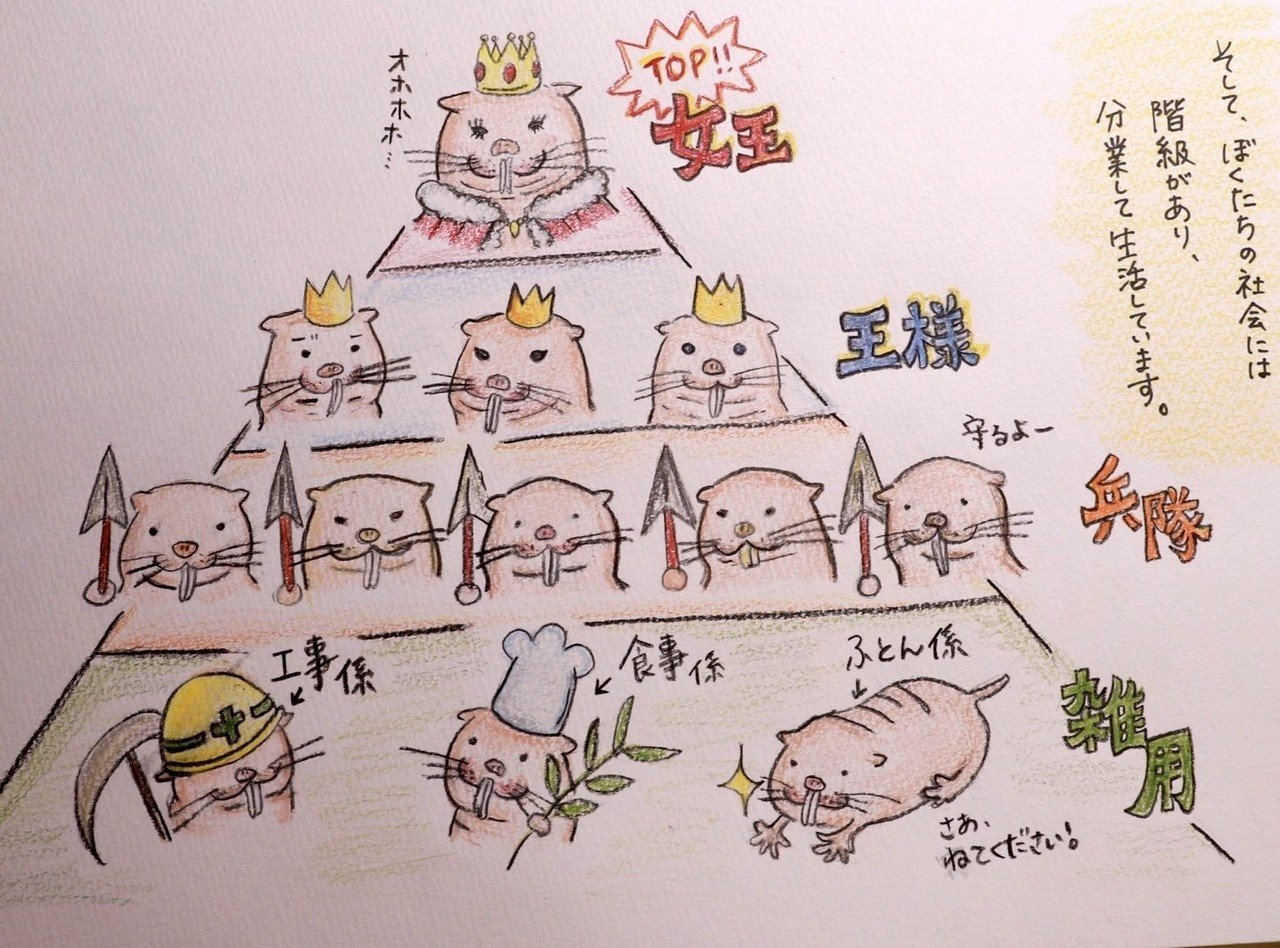 そして、ぼくたちの社会には
階級があり、
分業して生活しています。
オホホホ…
TOP!!
女王
王様
守るよー
兵隊
工事係
食事係
ふとん係
雑用
さあ、
ねてください!